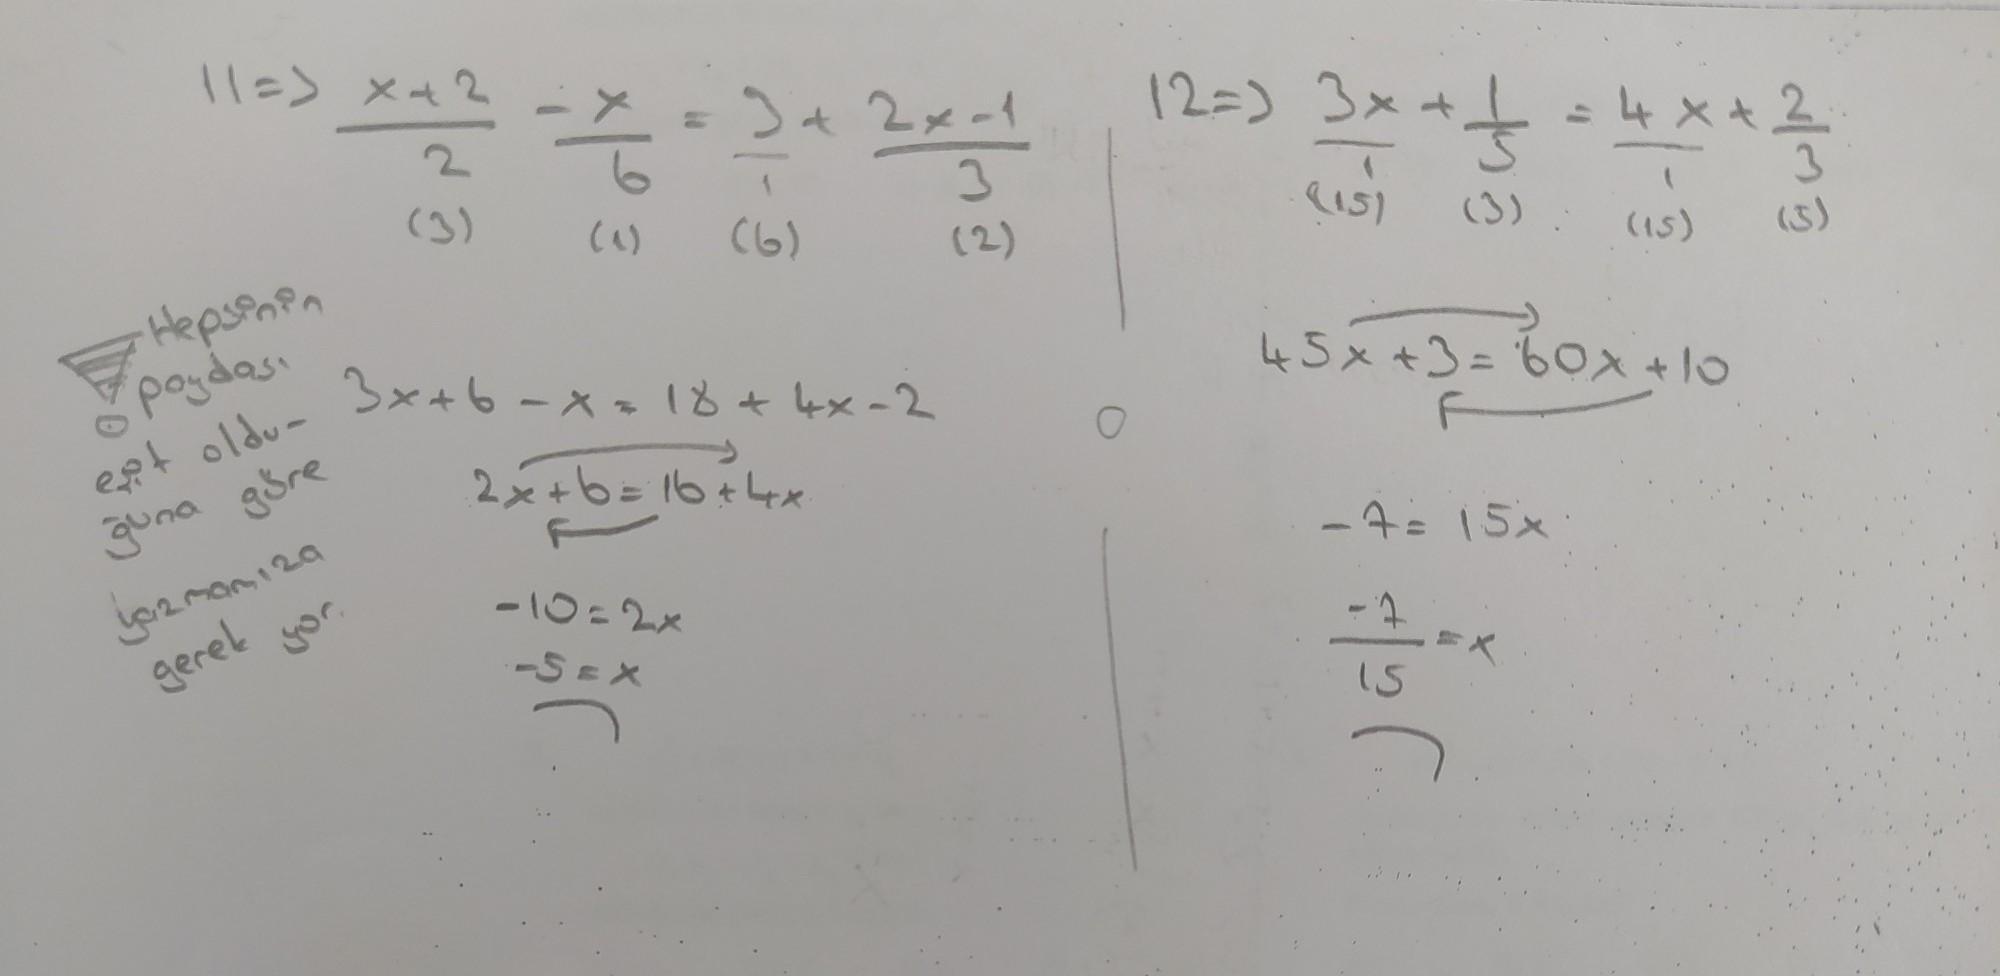 11=> x+2/2 - x/6 = 3/1 + 2x-1/3
(3) (1) (6) (2)
Hepsinin
paydası
eşit oldu-
ğuna göre
yazmamıza
gerek yor.
3x+6-x=18+4x-2
2x+6=16+4x
-10=2x
-5=x
12=> 3x/1 + 1/5 = 4x/1 + 2/3
(15) (3) (15) (5)
45x+3=60x+10
-7=15x
-7/15=x